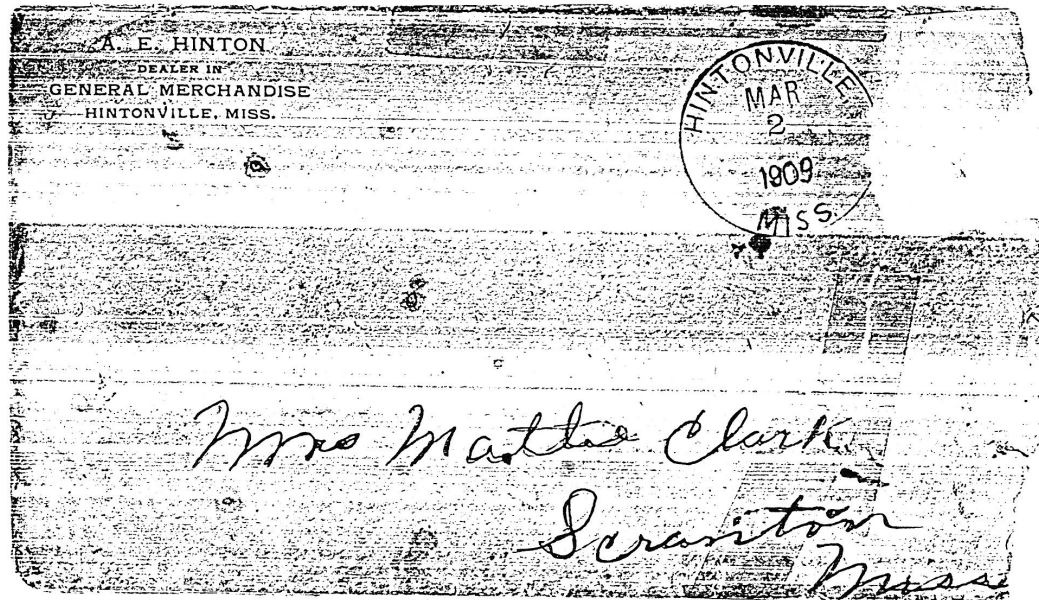 A. E. HINTON
DEALER IN
GENERAL MERCHANDISE
HINTONVILLE, MISS.
HINTONVILLE,
MAR
2
1909
MISS.
Mrs Mattie Clark
Scranton
Miss